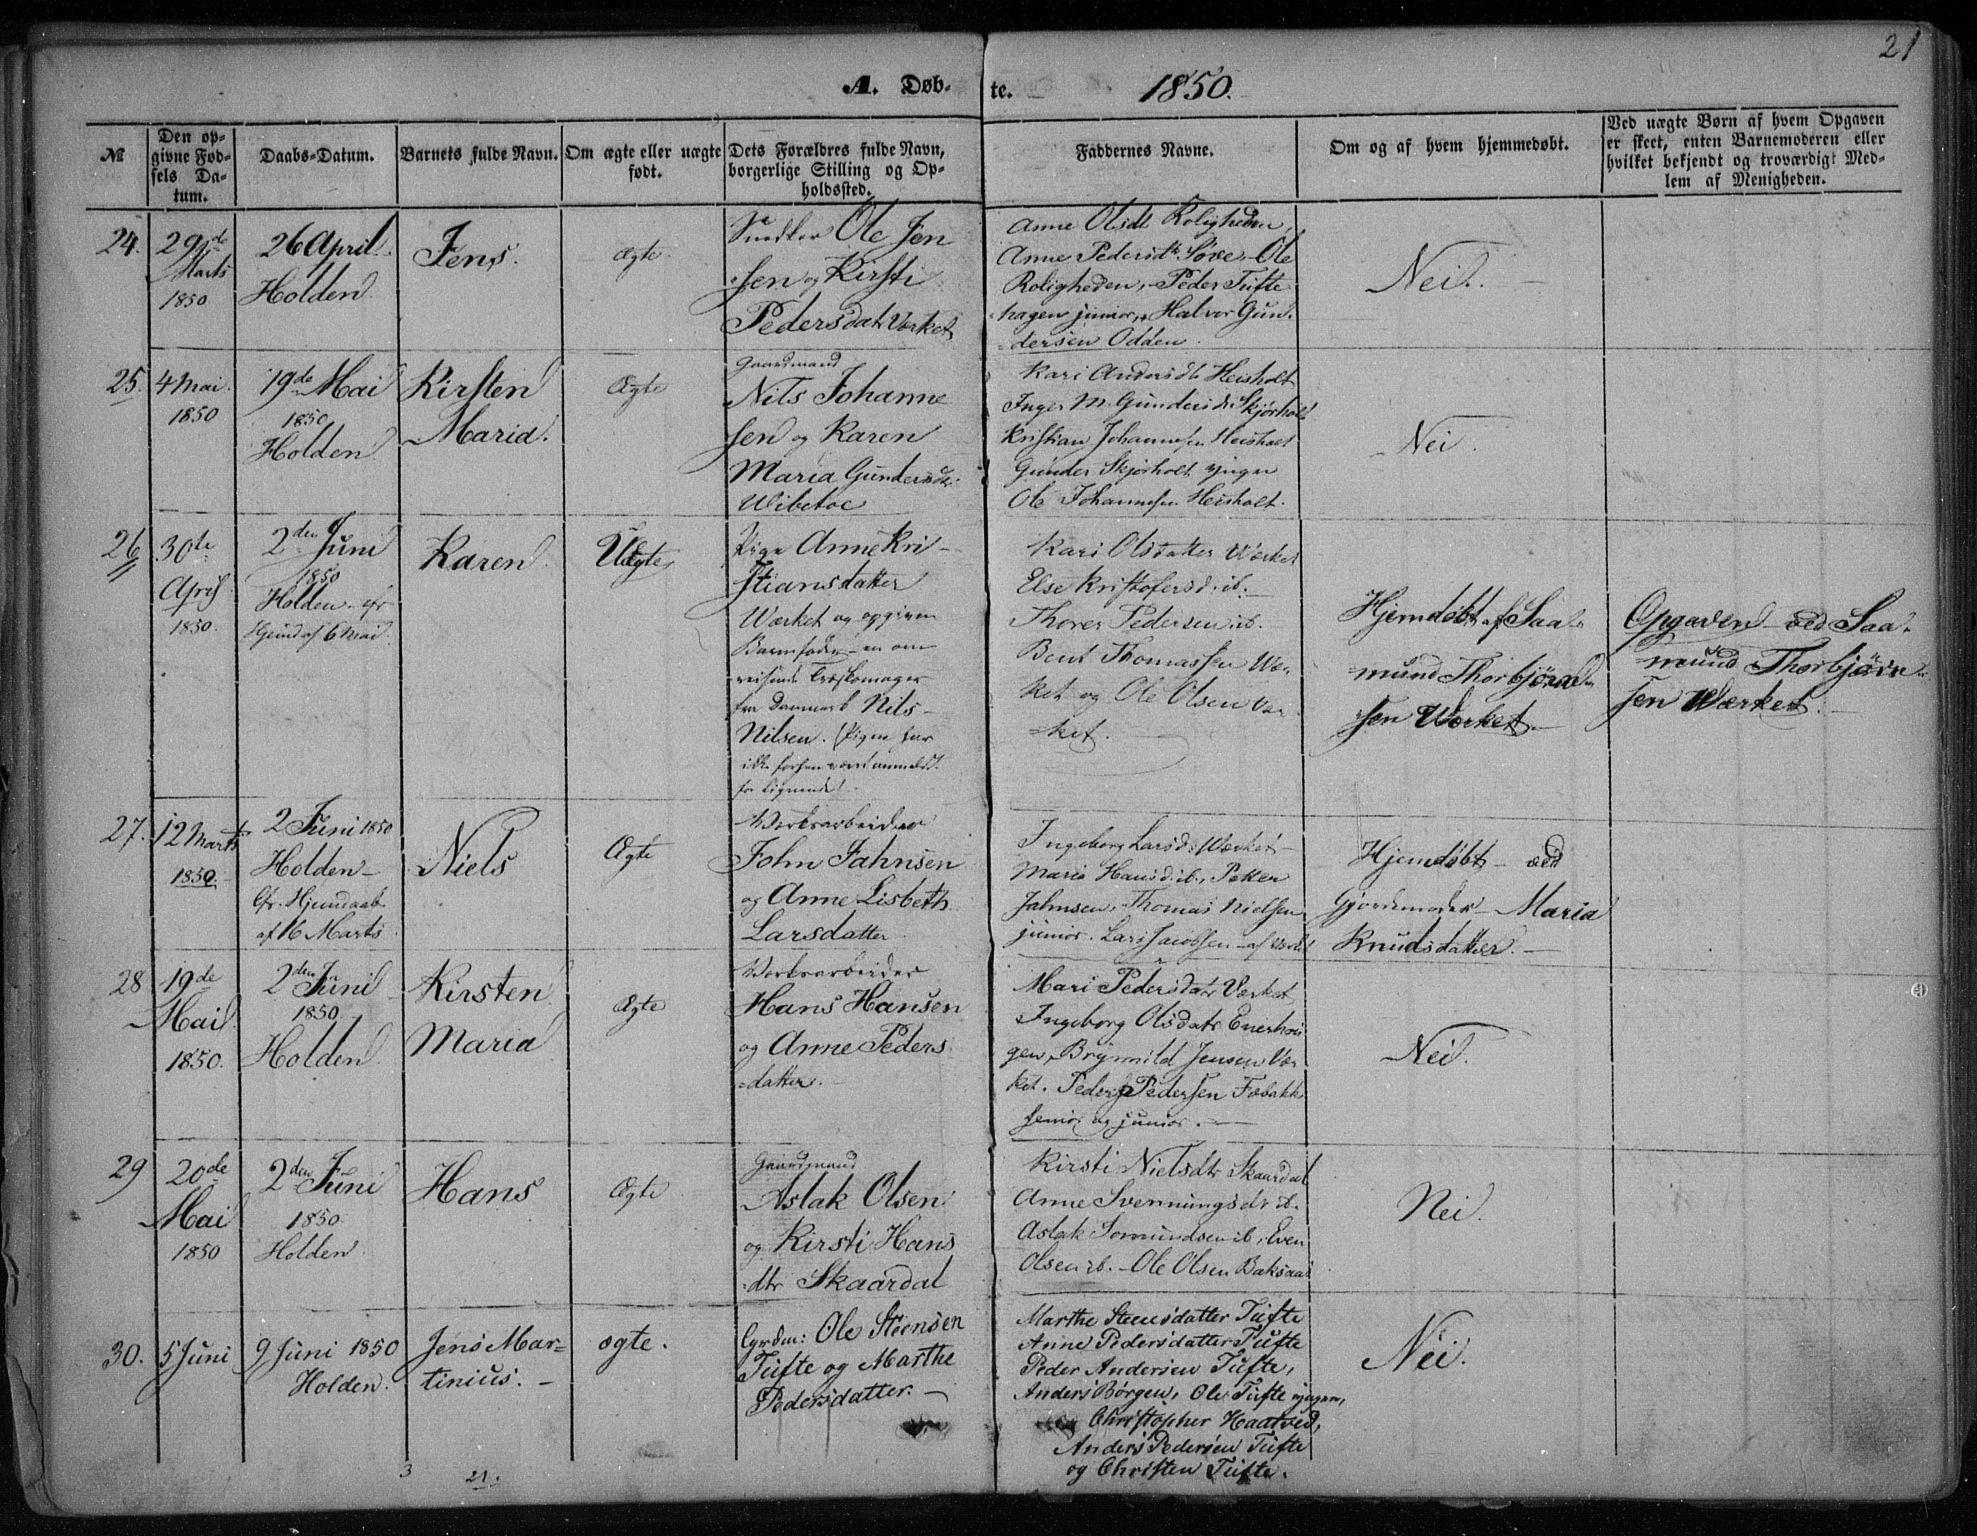 21
A. Døb-
te.
1850.
№
Den op-
givne Fød-
sels Da-
tum.
Daabs-Datum.
Barnets fulde Navn.
Om ægte eller uægte
født.
Dets Forældres fulde Navn,
borgerlige Stilling og Op-
holdssted.
Faddernes Navne.
Om og af hvem hjemmedøbt.
Ved uægte Børn af hvem Opgaven
er skeet, enten Barnemoderen eller
hvilket bekjendt og troværdigt Med-
lem af Menigheden.
24.
29de
Marts
1850
26 April
Holden
Jens.
Ægte
Snedker Ole Jen
sen og Kirsti
Pedersdatr Værket
Anne Olsdt Roligheden,
Anne Pedersdt Søve, Ole
Roligheden, Peder Tufte
hagen junior, Halvor Gun-
dersen Odden.
Nei.
25.
4 Mai.
1850
19de Mai
1850
Holden
Kirsten
Maria.
Ægte
Gaardmand
Nils Johanne
sen og Karen
Maria Gundersdtr
Wibetoe
Kari Andersdt Heisholt
Inger M. Gundersdr Skjørholt
Kristian Johannesen Heisholt
Gunder Skjørholt yngre
Ole Johannesen Heisholt.
Nei.
26
30te
April
1850.
2den Juni
1850
Holden cfr
Hjemd. af 6 Mai.
Karen.
Uægte
Pige Anne Kri-
stiansdatter
Wærket og opgiven
Barnefader en om
reisende Træskomager
fra Danmark Nils
Nilsen. Pigen har
ikke forhen været anmeldt
for Lignende.
Kari Olsdatter Wærket
Else Kristofersd. ib.
Thores Pedersen ib.
Bent Thomassen Vær-
ket og Ole Olsen Vær
ket.
Hjemdøbt af Saa-
mund Thorbjørn-
sen Wærket.
Opgaven ved Saa-
mund Thorbjørn-
sen Wærket.
27.
12 Marts
1850.
2 Juni 1850
Holden
Cfr. Hjemdaab
af 16 Marts.
Niels
Ægte
Værksarbeider
John Jahnsen
og Anne Lisbeth
Larsdatter
Ingeborg Larsd. Wærket
Maria Hansd. ib., Petter
Jahnsen, Thomas Nielsen
junior. Lars Jacobsen af Værket
Hjemdøbt ved
Gjordemoder Maria
Knudsdatter.
28
19de
Mai
1850.
2den Juni
1850.
Holden
Kirsten
Maria
Ægte
Værksarbeider
Hans Hansen
og Anne Peders
datter.
Mari Pedersdatr Værket
Ingeborg Olsdatr Enerhau
gen, Brynnild Jensen Vær
ket. Peder Pedersen Fæbakk
senior og junior.
Nei.
29
20de
Mai
1850
2den Juni
1850
Holden
Hans
Ægte
Gaardmand
Aslak Olsen
og Kirsti Hans
dtr Skaardal
Kirsti Nielsdtr Skaardal
Anne Svennungsdr ib.
Aslak Somundsen ib, Even
Olsen ib. Ole Olsen Baksaas
Nei.
30.
5 Juni
9 Juni 1850
Holden.
Jens Mar-
tinius.
ægte.
Grdm: Ole Steensen
Tufte og Marthe
Pedersdatter.
Marthe Steensdatter Tufte
Anne Pedersdatter Tufte
Peder Andersen Tufte,
Anders Børgen, Ole Tufte yngre,
Christopher Haatved,
Anders Pedersen Tufte
og Christen Tufte.
Nei.
3
21.